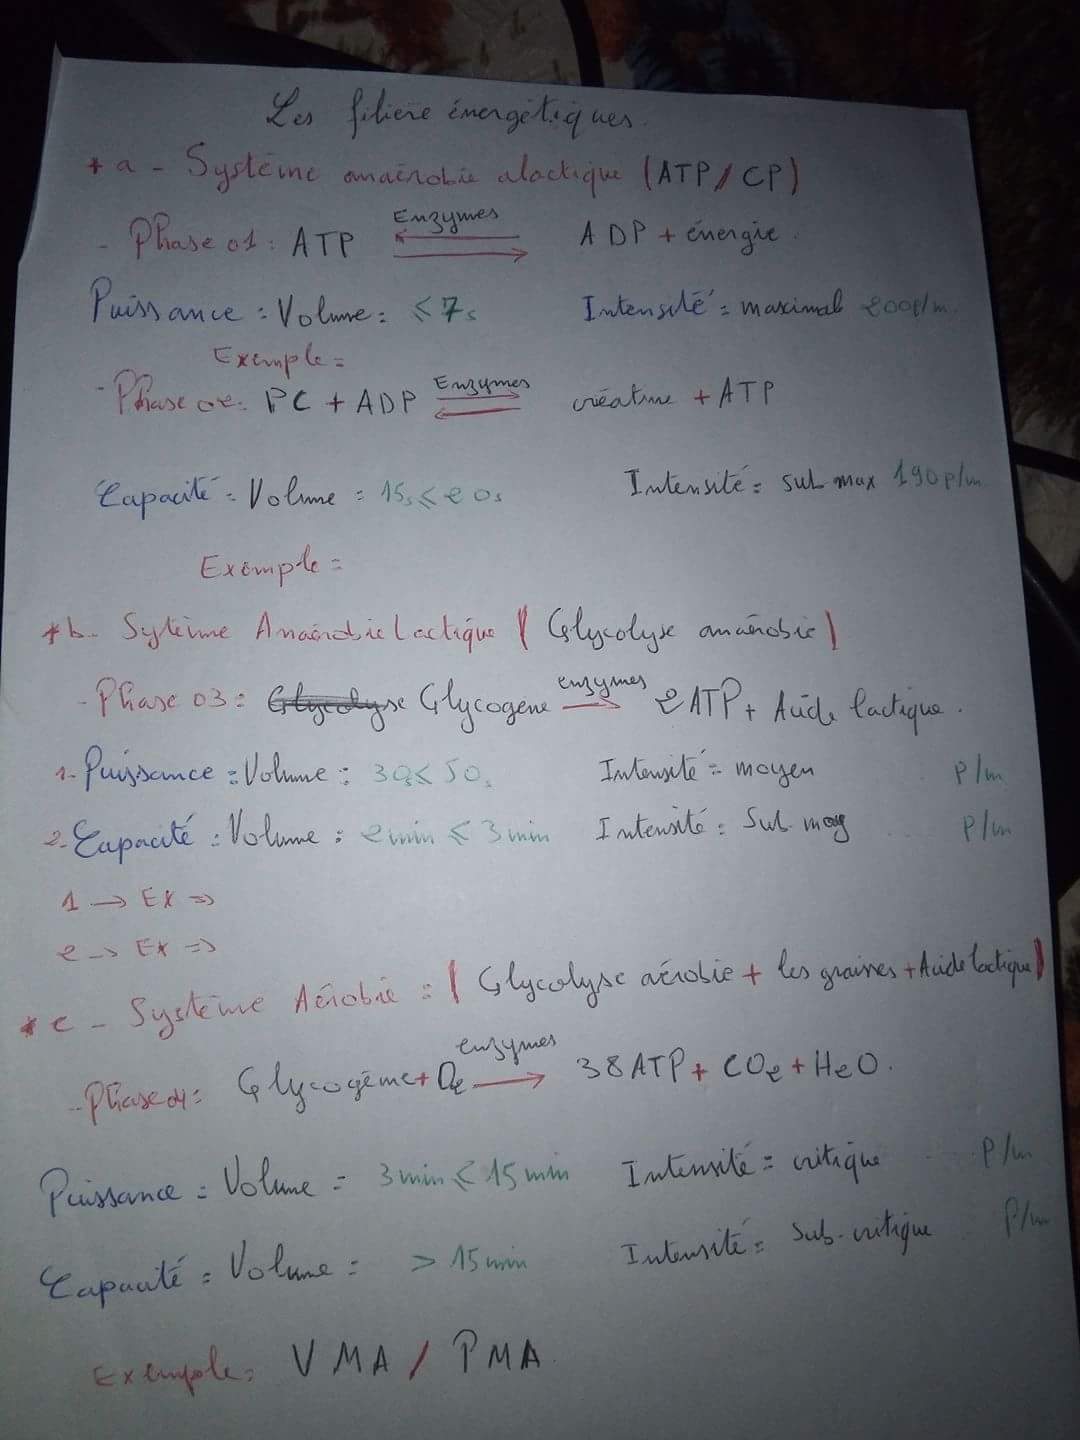 Les filière énergétiques.
* a - Système anaérobie alactique (ATP/CP)
- Phase 01 : ATP Enzymes ⇄ ADP + énergie.
Puissance = Volume = ≤ 7s Intensité = maximal 200p/m.
Exemple =
- Phase 02 : PC + ADP Enzymes ⇄ créatine + ATP
Capacité = Volume = 15s ≤ 20s Intensité = sub max 190 p/m
Exemple =
*b- Sytème Anaérobie Lactique ( Glycolyse anaérobie)
- Phase 03 = Glycolyse Glycogène enzymes → 2 ATP + Acide lactique.
1- Puissance = Volume : 30s ≤ 50s Intensité = moyen p/m
2- Capacité = Volume : 2min ≤ 3min Intensité = Sub. moy p/m
1 → EX =>
2 → EX =>
* c - Système Aérobie = ( Glycolyse aérobie + les graines + Acide lactique)
- Phase 04 = Glycogème + O2 enzymes → 38 ATP + CO2 + H2O.
Puissance = Volume = 3min ≤ 15min Intensité = critique p/m
Capacité = Volume = > 15min Intensité = Sub-critique p/m
Exemple = VMA / PMA